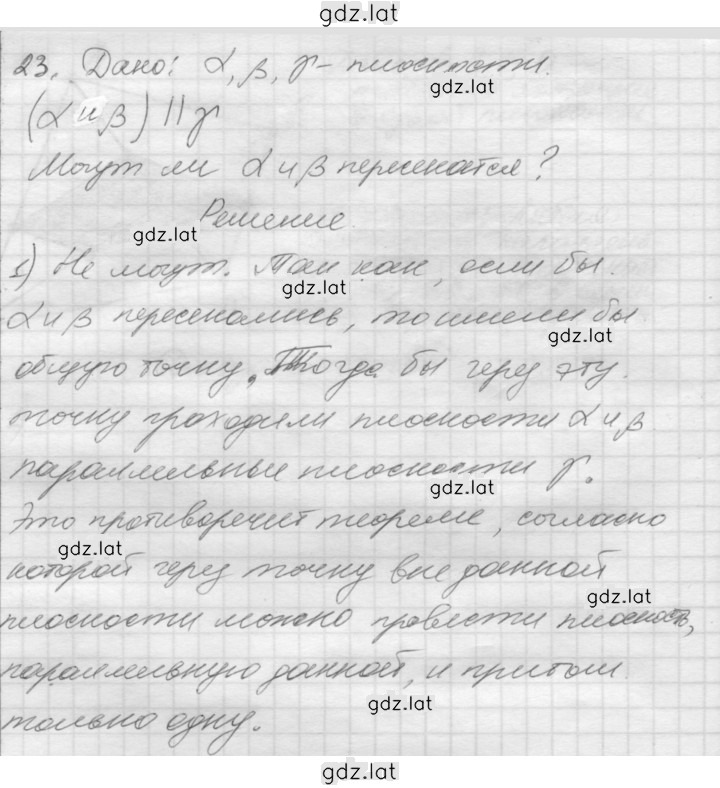 gdz.lat
23. Дано: α, β, γ - плоскости.
gdz.lat
(α и β) || γ
Могут ли α и β пересекатся?
Решение.
gdz.lat
1) Не могут. Так как, если бы
gdz.lat
α и β пересекались, то имели бы
gdz.lat
общую точку. Тогда бы через эту
точку проходили плоскости α и β
параллельные плоскости γ.
gdz.lat
Это противоречит теореме, согласно
gdz.lat
которой через точку вне данной
gdz.lat
плоскости можно провести плоскость,
параллельную данной, и притом
gdz.lat
только одну.
gdz.lat